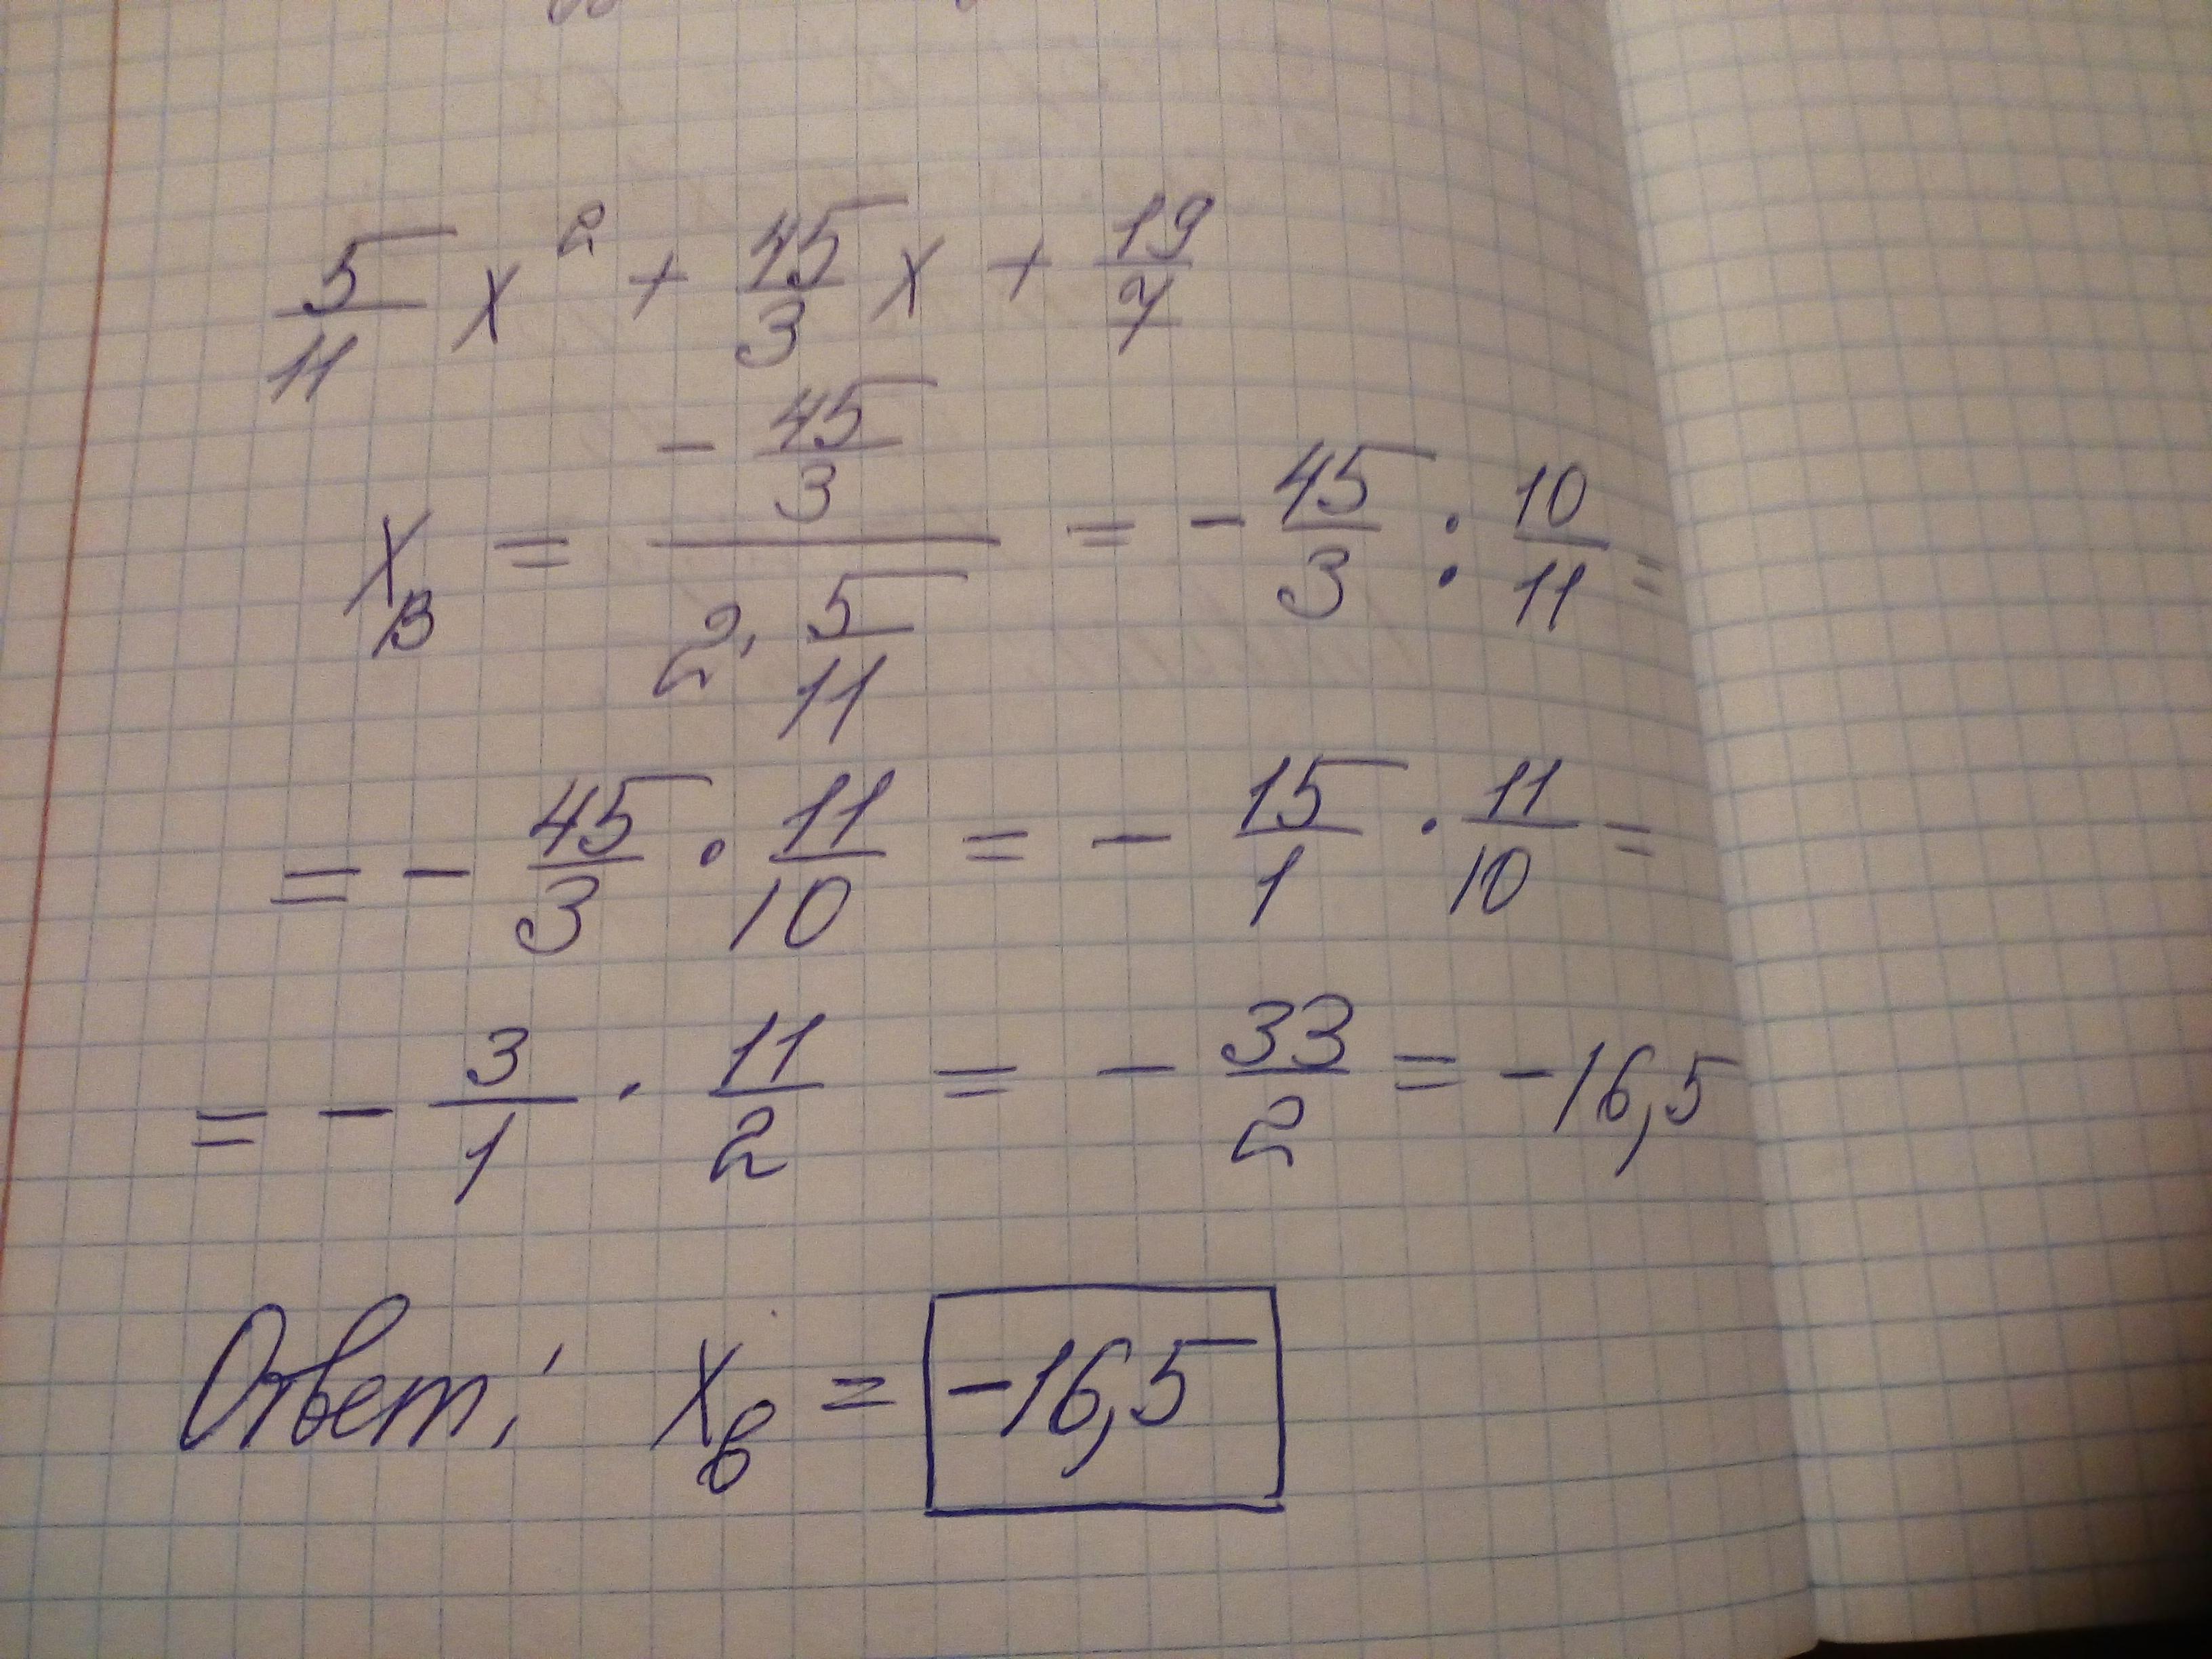 5/11 x² + 45/3 x + 19/7
x_В = (- 45/3)/(2 · 5/11) = - 45/3 : 10/11 =
= - 45/3 · 11/10 = - 15/1 · 11/10 =
= - 3/1 · 11/2 = - 33/2 = -16,5
Ответ: x_в = -16,5